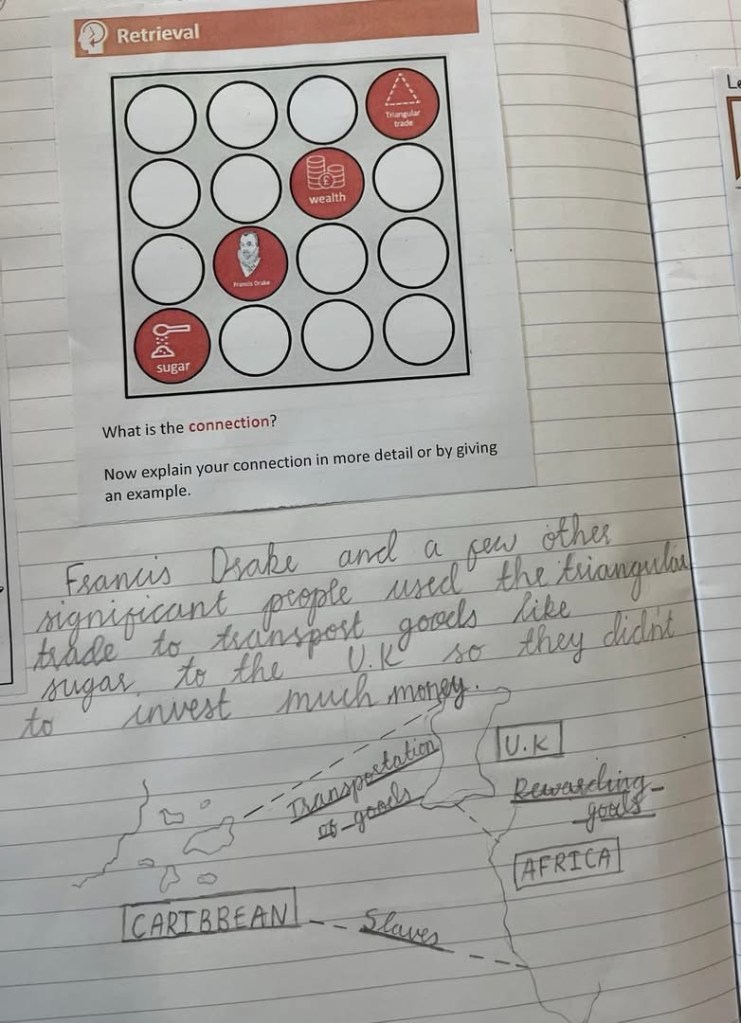 Retrieval
Triangular
trade
wealth
Francis Drake
sugar
What is the connection?
Now explain your connection in more detail or by giving
an example.
Francis Drake and a few other
significant people used the triangular
trade to transport goods like
sugar to the U.K so they didn't
to invest much money.
U.K
Transportation
of goods
Rewarding
goods
AFRICA
CARIBBEAN
Slaves
Le